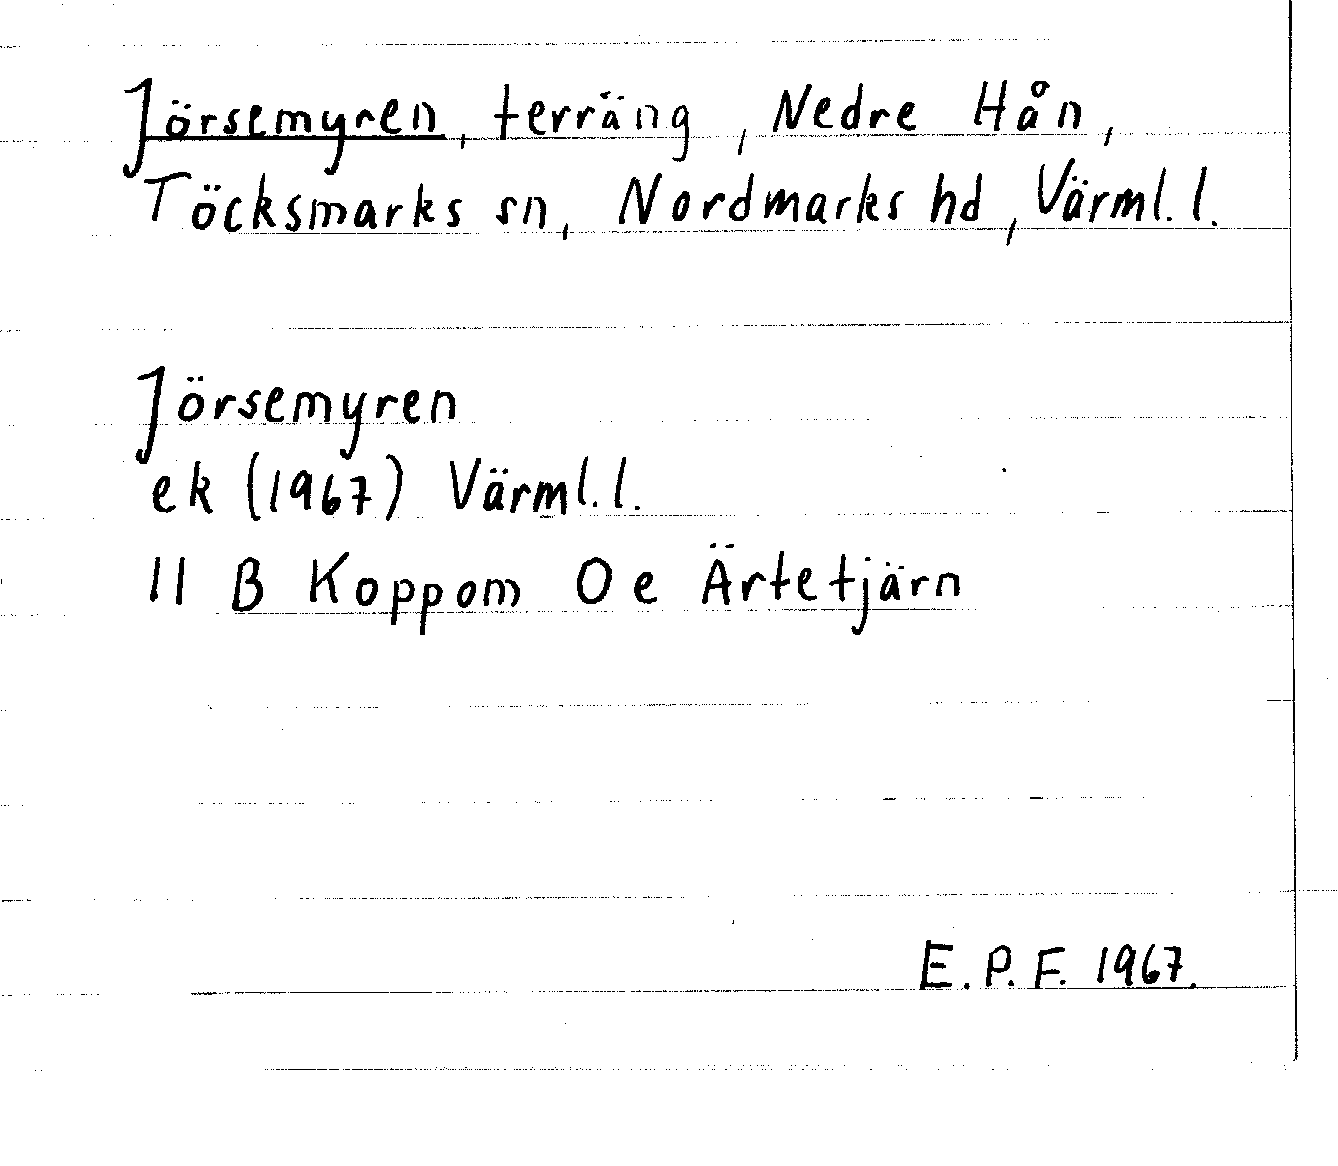 Jörsemyren, terräng, Nedre Hån,
Töcksmarks sn, Nordmarks hd, Värml. l.
Jörsemyren
ek (1967) Värml. l.
11 B Koppom 0 e Ärtetjärn
E. P. F. 1967.